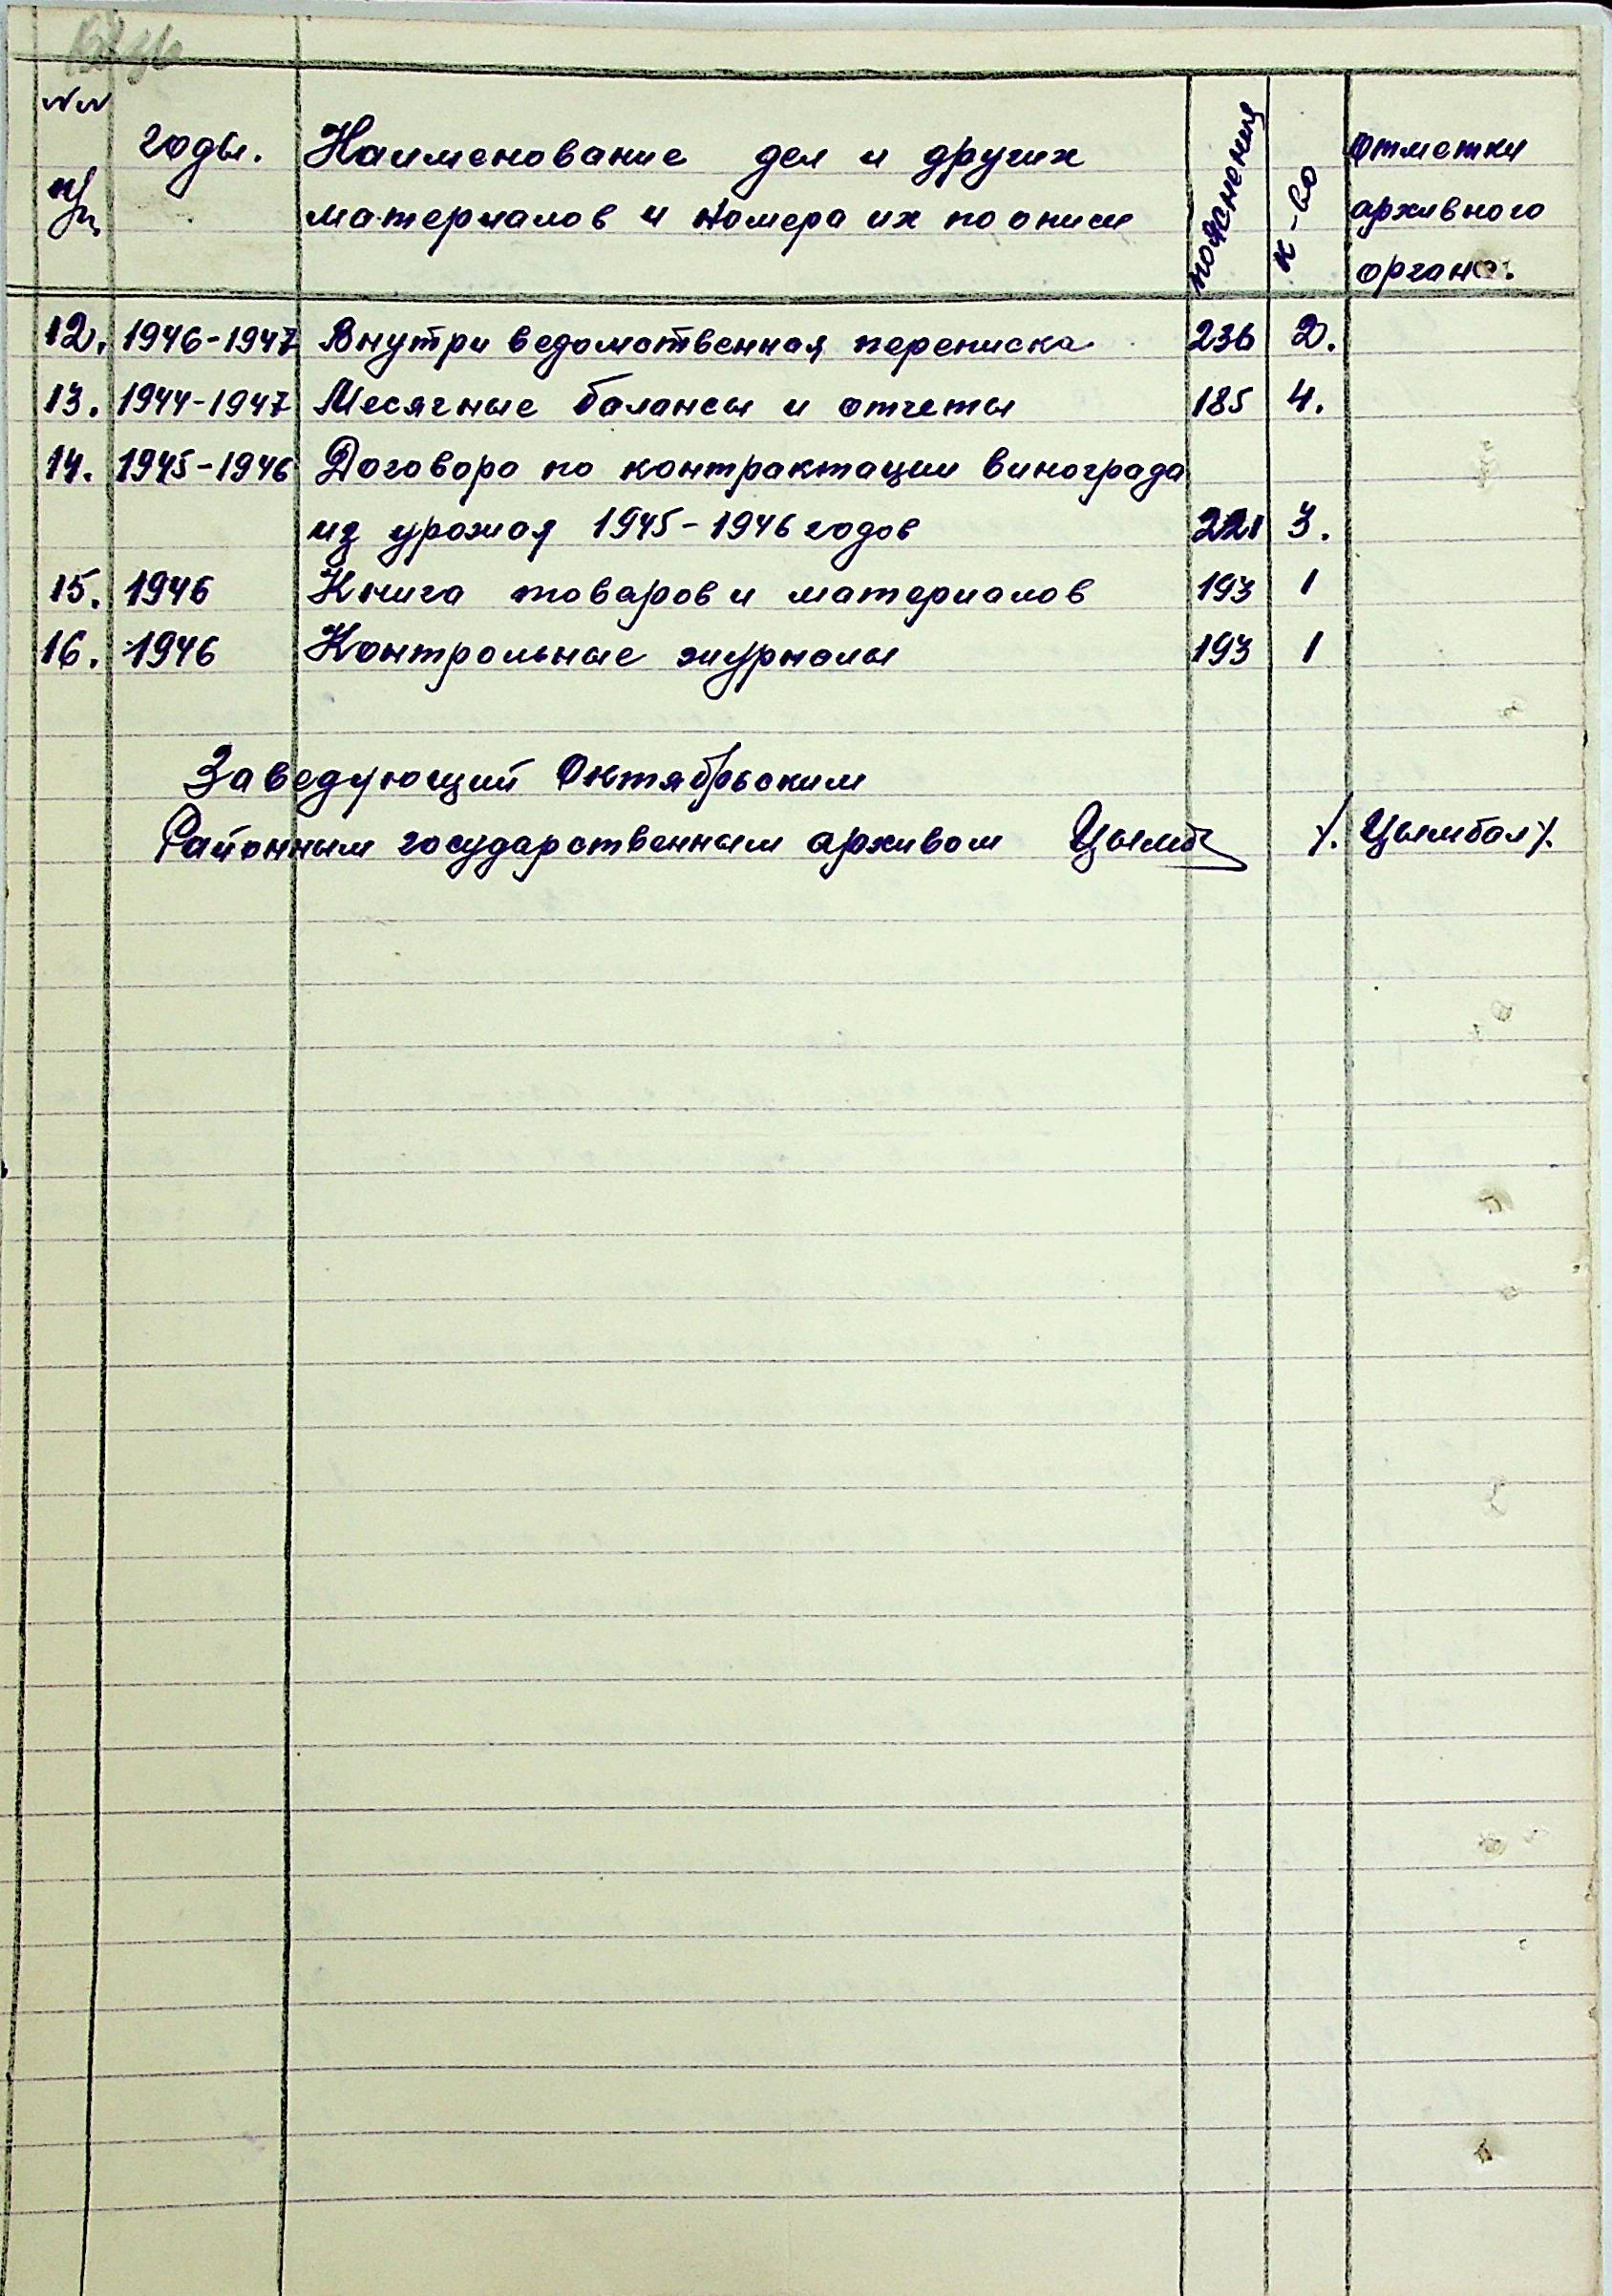 №№ п/п годы. Наименование дел и других материалов и номера их по описи пояснения к-во отметки архивного органа.
12. 1946-1947 Внутри ведомственная переписка 236 2.
13. 1944-1947 Месячные балансы и отчеты 185 4.
14. 1945-1946 Договора по контрактации винограда
из урожая 1945-1946 годов 221 3.
15. 1946 Книга товаров и материалов 193 1
16. 1946 Контрольные журналы 193 1
Заведующий Октябрьским
Районным государственным архивом Цымб /. Цымбал /.